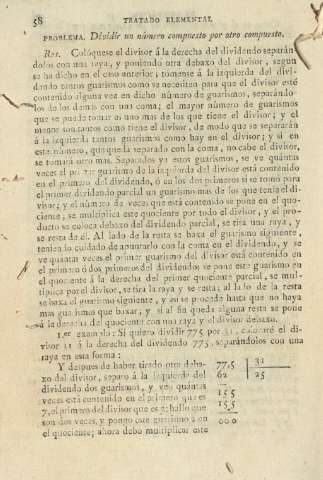 58 TRATADO ELEMENTAL
PROBLEMA. Dividir un número compuesto por otro compuesto.
Res. Colóquese el divisor á la derecha del dividendo separán
dolos con una raya, y poniendo otra debaxo del divisor, segun
se ha dicho en el caso anterior; tómense á la izquierda del divi-
dendo tantos guarismos como se necesiten para que el divisor esté
contenido alguna vez en dicho número de guarismos, separándo-
los de los demas con una coma; el mayor número de guarismos
que se puede tomar es uno mas de los que tiene el divisor; y el
menor son tantos como tiene el divisor, de modo que se separarán
á la izquierda tantos guarismos como hay en el divisor; y si en
este número, que queda separado con la coma, no cabe el divisor,
se tomará otro mas. Separados ya estos guarismos, se ve quántas
veces el primer guarismo de la izquierda del divisor está contenido
en el primero del dividendo, ó en los dos primeros si se tomó para
el primer dividendo parcial un guarismo mas de los que tenia el di-
visor; y el número de veces que está contenido se pone en el quo-
ciente, se multiplica este quociente por todo el divisor, y el pro-
ducto se coloca debaxo del dividendo parcial, se tira una raya, y
se resta de él. Al lado de la resta se baxa el guarismo siguiente,
teniendo cuidado de apuntarlo con la coma en el dividendo, y se
ve quantas veces el primer guarismo del divisor está contenido en
el primero ó dos primeros del dividendo; se pone este guarismo en
el quociente á la derecha del primer quociente parcial, se mul-
tiplica por el divisor, se tira la raya y se resta; al lado de la resta
se baxa el guarismo siguiente, y así se procede hasta que no haya
mas guarismos que baxar; y si al fin queda alguna resta se pone
á la derecha del quociente con una raya y el divisor debaxo.
1.er exemplo: Si quiero dividir 775 por 31, colocaré el di-
visor 31 á la derecha del dividendo 775, separándolos con una
raya en esta forma:
Y despues de haber tirado otra deba- 77,5 | 31
xo del divisor, separo á la izquierda del 62 25
dividendo dos guarismos, y veo quántas
veces está contenido en el primero que es 155
7, el primero del divisor que es 3; hallo que 155
son dos veces, y pongo este guarismo 2 en 000
el quociente; ahora debo multiplicar este